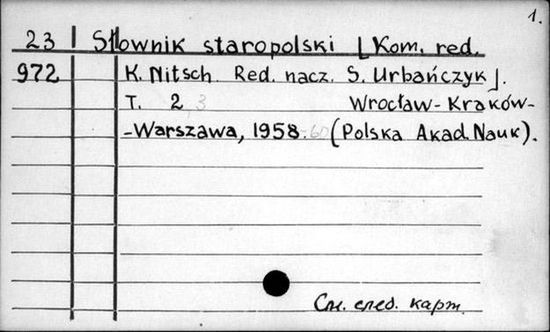 1.
23 Słownik staropolski [Kom. red.
972 K. Nitsch. Red. nacz. S. Urbańczyk].
T. 2 3 Wrocław-Kraków-
-Warszawa, 1958-60 (Polska Akad. Nauk).
См. след. карт.